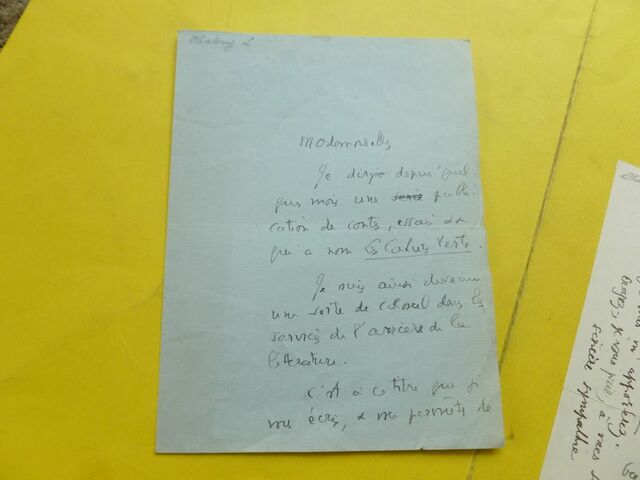 Halévy
Mademoiselle,
Je dirige depuis quel-
ques mois une série publi-
cation de contes, essais &a
qui a nom Les Cahiers Verts.
Je suis ainsi devenu
une sorte de colonel dans les
services de l'arrière de la
littérature.
C'est à ce titre que je
vous écris, & me permets de
apportez.
je vous prie, à mes
sincère sympathie